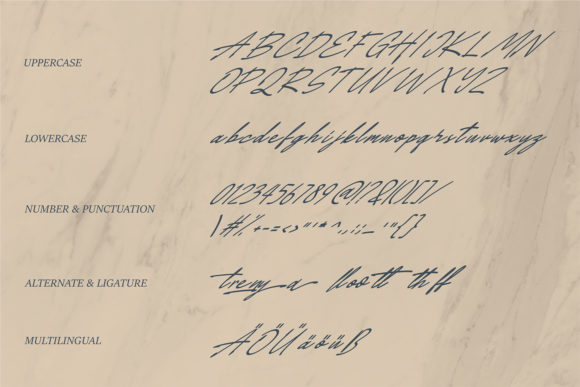 UPPERCASE
ABCDEFGHIJKLMN
OPQRSTUVWXYZ
LOWERCASE
abcdefghijklmnopqrstuvwxyz
NUMBER & PUNCTUATION
0123456789@!?&()[]/
ALTERNATE & LIGATURE
a ll oo tt th ff
MULTILINGUAL
ÄÖÜäöüß